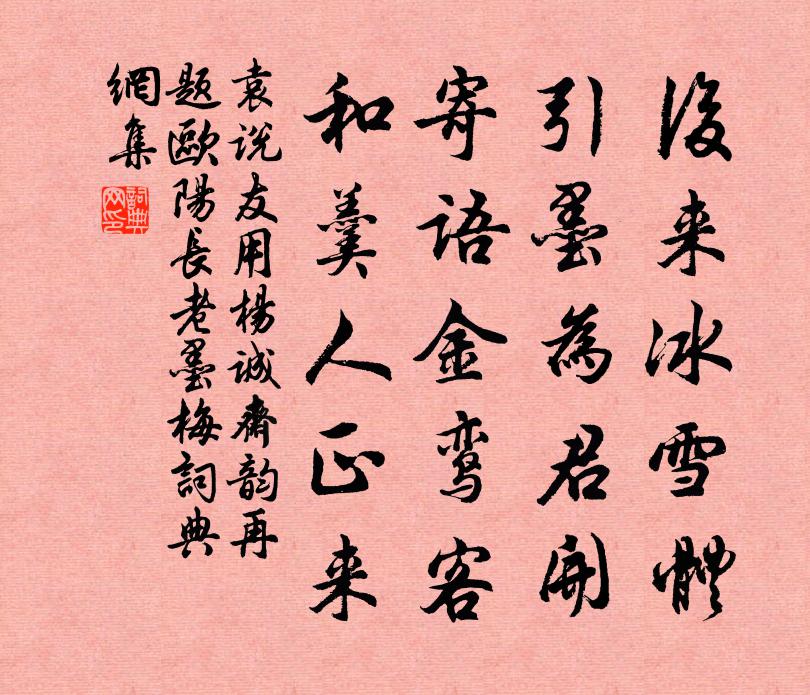 後来冰雪體
引墨為君開
寄語金鸾客
和羹人正来
袁说友用楊誠齋韵再
題歐陽長老墨梅詞典
網集
詞典网印